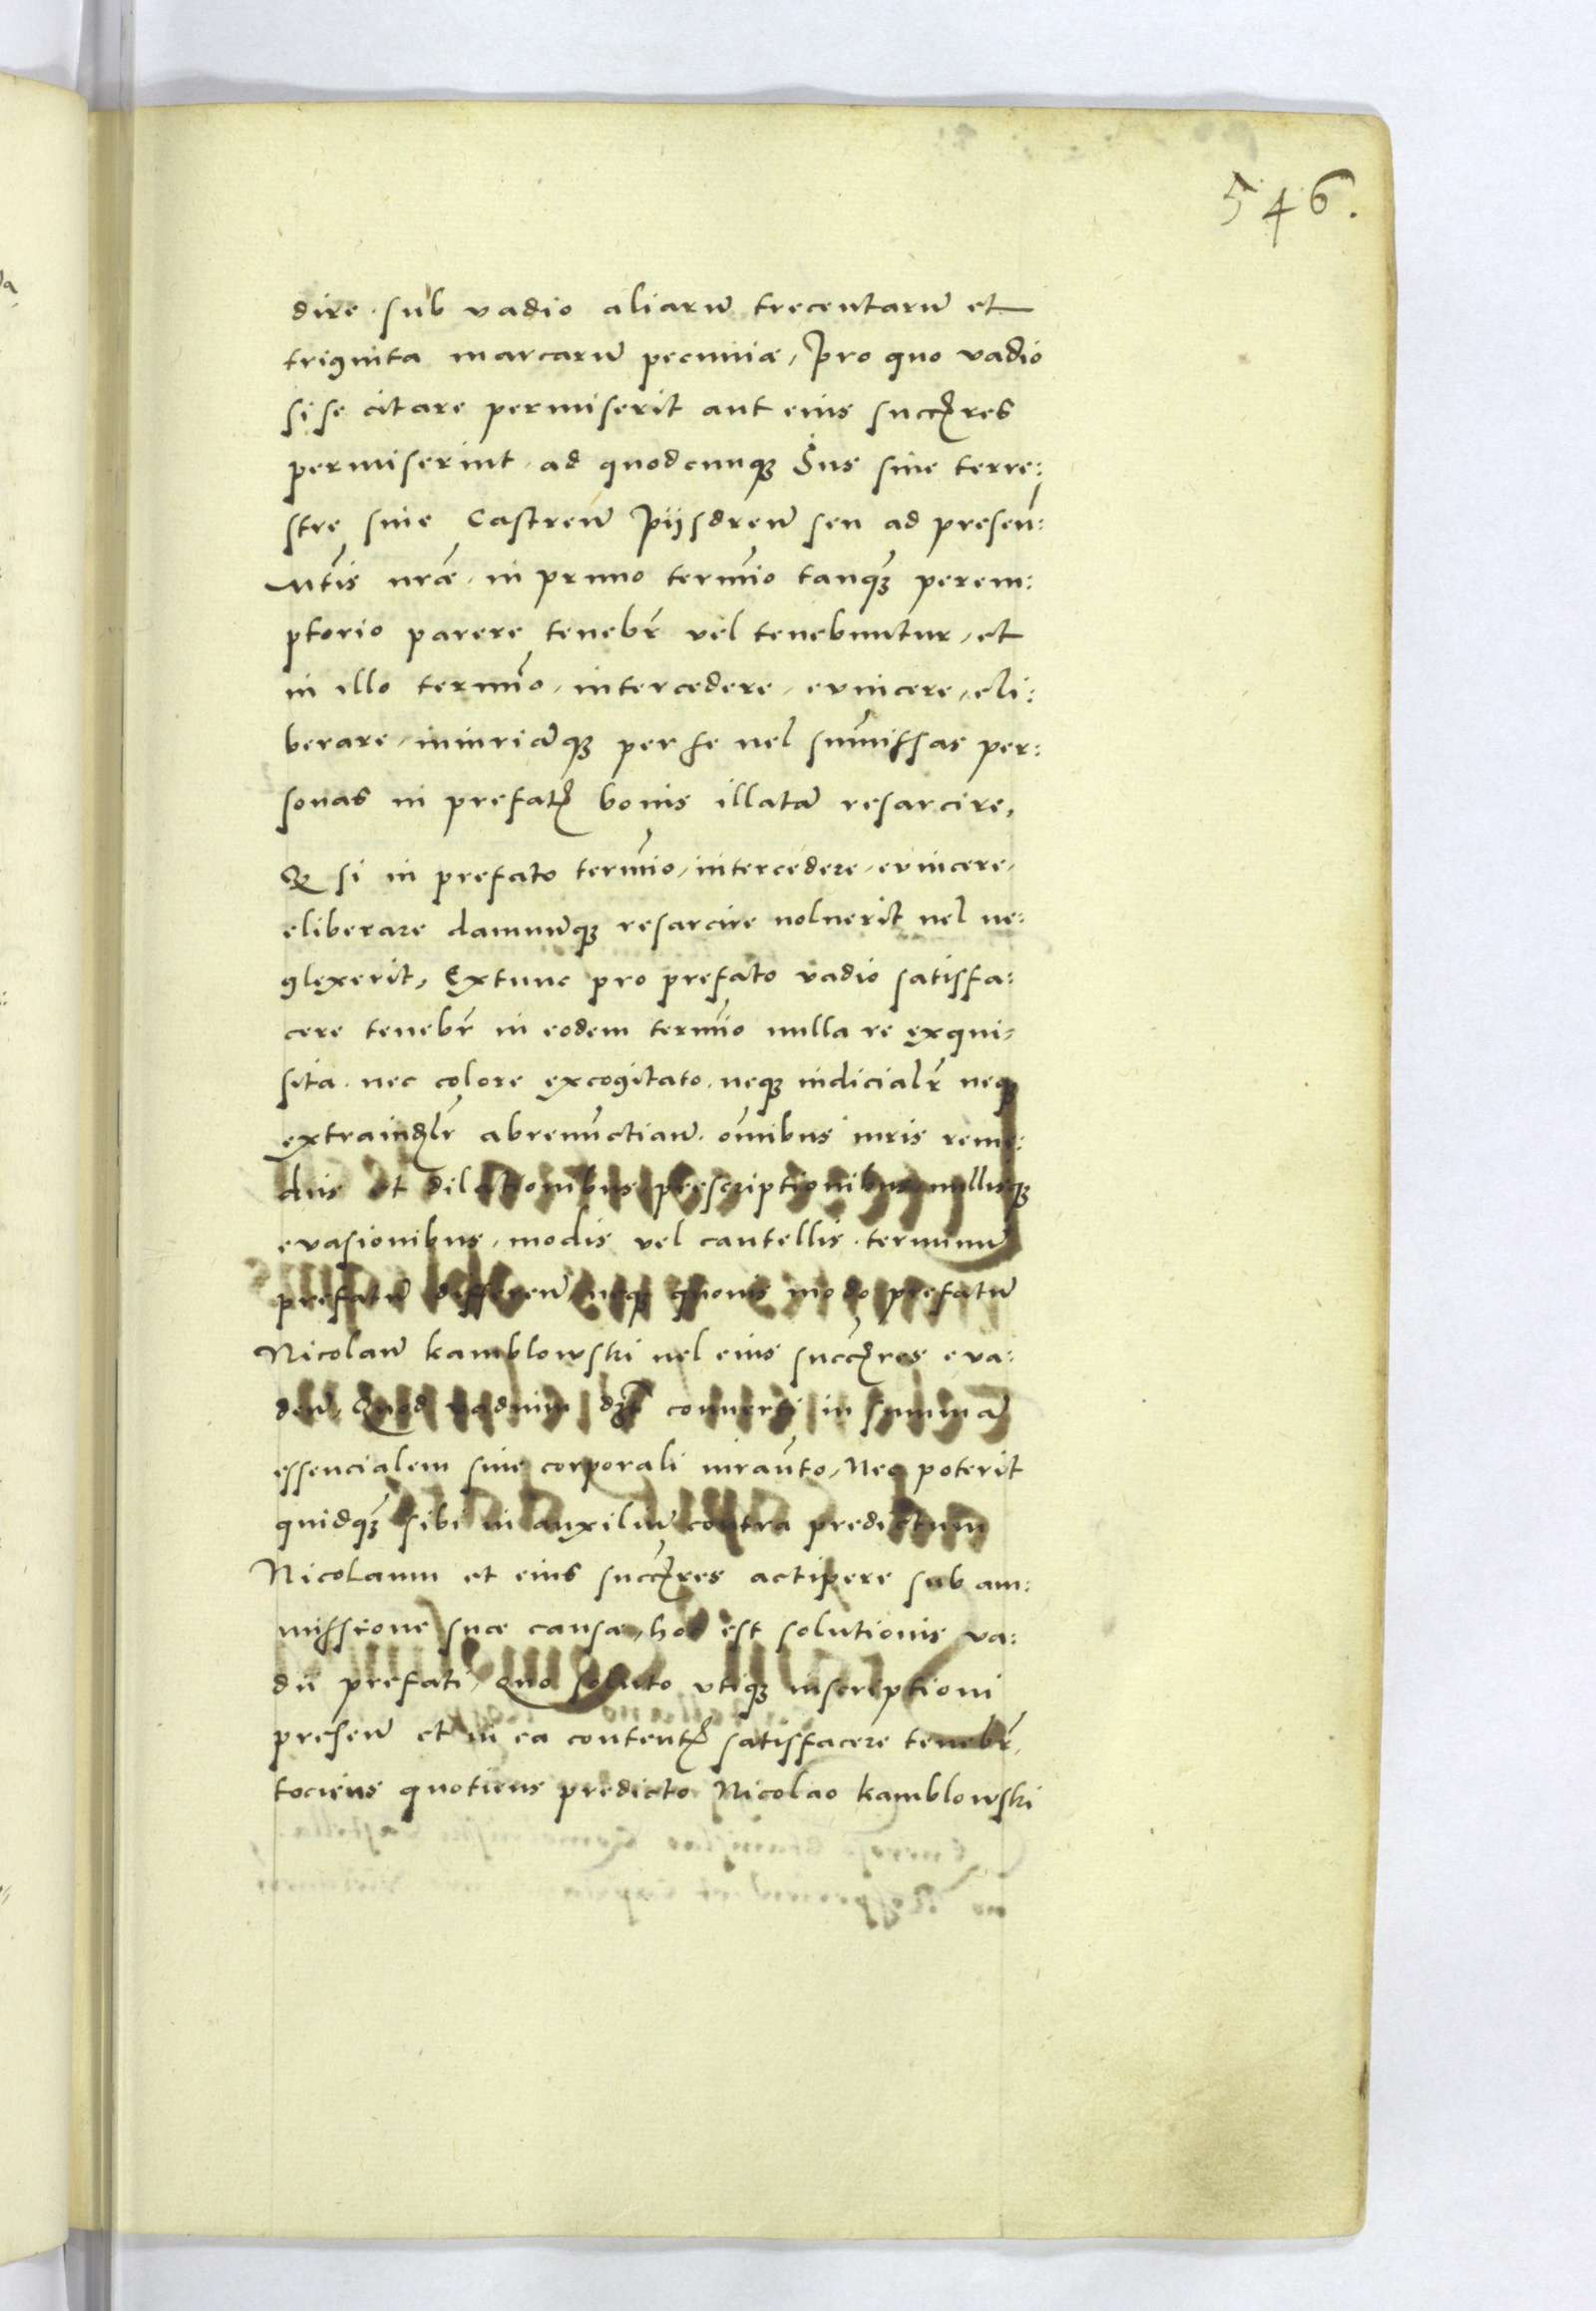 546.
dire. sub vadio aliarū trecentarū et
triginta marcarū pecuniæ, Pro quo vadio
si se citare permiserit aut eius succ̄res
permiserint, ad quodcunqꝫ Ius siue terre:
stre siue Castreñ Pijsdreñ seu ad preseñ:
Mtis nræ, in primo termīo tanqꝫ perem:
ptorio parere tenebr̄ vel tenebuntur, et
in illo termīo, intercedere, evincere, eli:
berare, iniuriāqꝫ per se uel summissas per:
sonas in prefat̄ bonis illatā resarcire,
Qꝫ si in prefato termīo, intercedere, evincere,
eliberare damnūqꝫ resarcire noluerit uel ne:
glexerit, Extunc pro prefato vadio satisfa:
cere tenebr̄ in eodem termīo nulla re exqui:
sita. nec colore excogitato. neqꝫ iudicialr̄ neqꝫ
extraiudlr̄ abrenūctiañ. oīnibus iuris reme:
diis et dilationibus prescriptionibus nullisqꝫ
evasionibus, modis vel cautellis. terminū
prefatū differeñ, neqꝫ quouis modo prefatū
Nicolaū kamblowski uel eius succ̄res eva:
deñ, Quod vadium dꝫ conuerti in summā
essencialem sine corporali iurañto, Nec poterit
quidqꝫ sibi in auxiliū contra predictum
Nicolaum et eius succ̄res accipere sub am:
missione suæ causæ, hoc est solutionis va:
dii prefati, Quo soluto vtiqꝫ inscriptioni
preseñ et in ea content̄ satisfacere tenebr̄,
tociens quotiens predicto Nicolao kamblowski